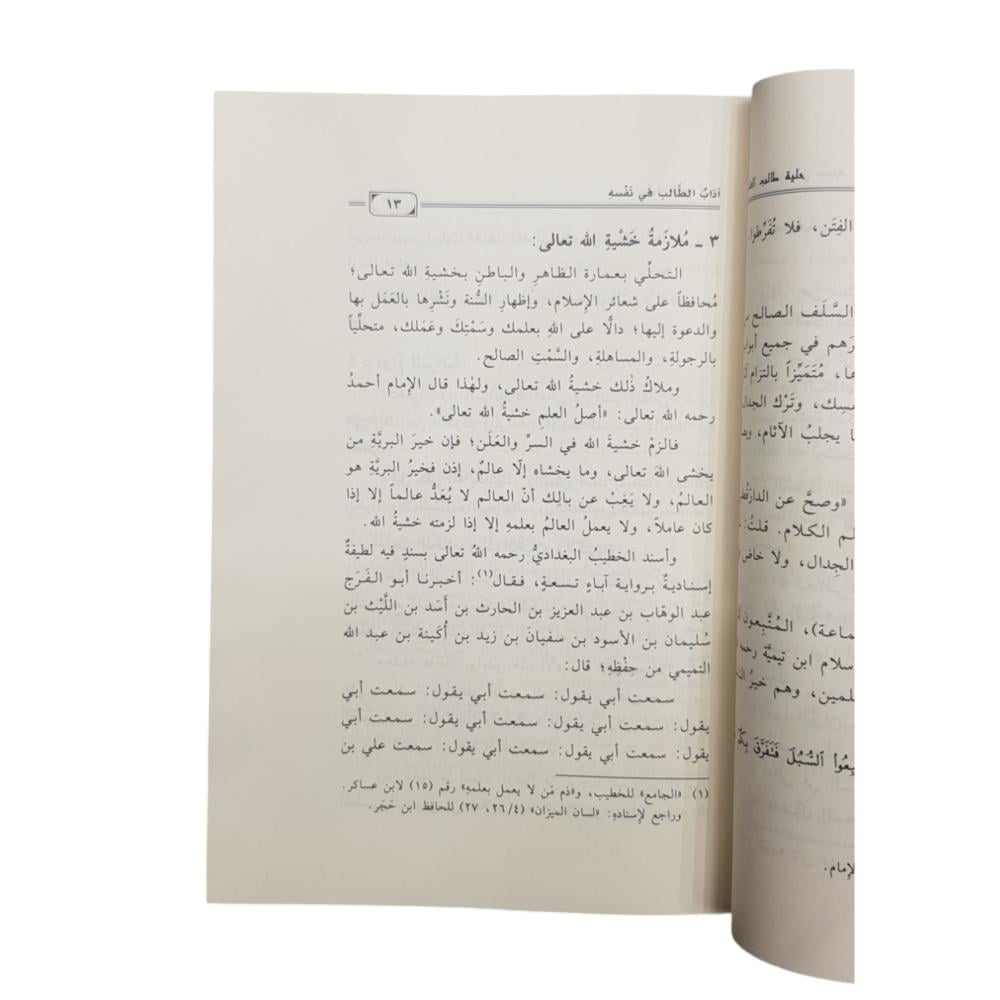 حلية طالب
الفِتَن، فلا تُفَرِّطوا
والسَّلَف الصالح
في جميع
مُتَمَيِّزاً بالتزام
وتَرْك الجدال
يجلبُ الآثام،
«وصحَّ عن
الكلام. قلتُ:
الجِدال، ولا خاض
المُتَّبِعون
ابن تيميَّة رحمه
وهم خيرُ
السُّبُلَ فَتَفَرَّقَ
آدَابُ الطَّالب في نَفْسهِ
١٣
٣ ـ مُلازَمةُ خَشْيةِ الله تعالى:
التحلِّي بعمارة الظاهرِ والباطنِ بخشيةِ الله تعالى؛
مُحافظاً على شعائر الإسلام، وإظهارِ السُّنة ونَشْرِها بالعَمَل بها
والدعوة إليها؛ دالًّا على اللهِ بعلمك وسَمْتِكَ وعَمَلك، متحلِّياً
بالرجولةِ، والمساهلةِ، والسَّمْتِ الصالح.
وملاكُ ذٰلك خشيةُ الله تعالى، ولهٰذا قال الإمام أحمدُ
رحمه الله تعالى: «أصلُ العلمِ خشيةُ الله تعالى».
فالزمْ خشيةَ الله في السرِّ والعَلَن؛ فإن خيرَ البريَّةِ من
يخشى اللهَ تعالى، وما يخشاه إلّا عالمٌ، إذن فخيرُ البريَّةِ هو
العالمُ، ولا يَغِبْ عن بالِك أنّ العالم لا يُعَدُّ عالماً إلا إذا
كان عاملاً، ولا يعملُ العالمُ بعلمهِ إلا إذا لزمته خشيةُ الله.
وأسند الخطيبُ البغداديُّ رحمه اللهُ تعالى بسندٍ فيه لطيفةٌ
إسناديةٌ برواية آباءٍ تسعةٍ، فقال(١): أخبرنا أبو الفَرَج
عبد الوهّاب بن عبد العزيز بن الحارث بن أسَد بن اللَّيْث بن
سُليمان بن الأسود بن سفيانَ بن زيد بن أُكَينة بن عبد الله
التميمي من حِفْظِهِ؛ قال:
سمعت أبي يقول: سمعت أبي يقول: سمعت أبي
يقول: سمعت أبي يقول: سمعت أبي يقول: سمعت أبي
يقول: سمعت أبي يقول: سمعت أبي يقول: سمعت علي بن
(١) «الجامع» للخطيب، و«ذم مَن لا يعمل بعلمهِ» رقم (١٥) لابن عساكر.
وراجع لإسنادهِ: «لسان الميزان» (٤/ ٢٦، ٢٧) للحافظ ابن حَجَر.